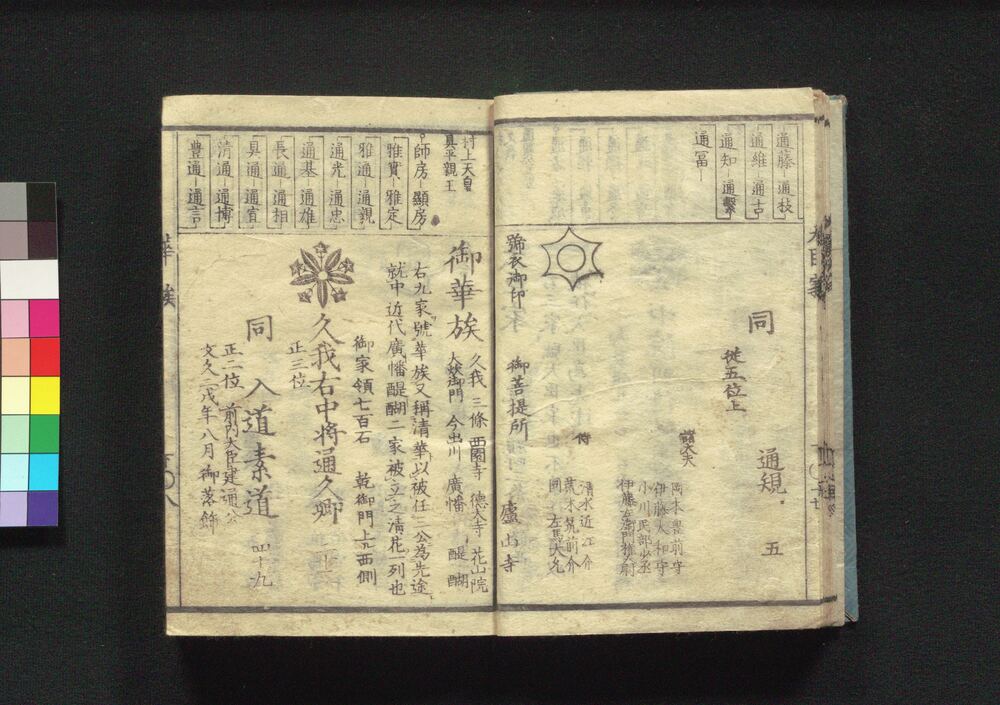 通藤－通枝
通維－通古
通知－通繫
通冨－
同　通規　五
従五位上
諸大夫
岡本豊前守
伊藤大和守
小川民部少丞
侍
清水近江介
荒木筑前介
同　左馬大允
號衣御印　御菩提所　盧山寺
村上天皇
具平親王
師房－顯房
雅實－雅定
雅通－通親
通光－通忠
通基－通雄
長通－通相
具通－通宣
清通－通博
豊通－通言
御華族
久我　三條　西園寺　德大寺　花山院
大炊御門　今出川　廣幡　醍醐
右九家號華族又稱清華以被任三公為先途
就中近代廣幡醍醐二家被立之清花一列也
御家領七百石　乾御門上ル西側
久我右中将通久卿
正三位
同　入道素道　四十九
正二位　前内大臣建通公
文久二戌年八月御落飾
華族